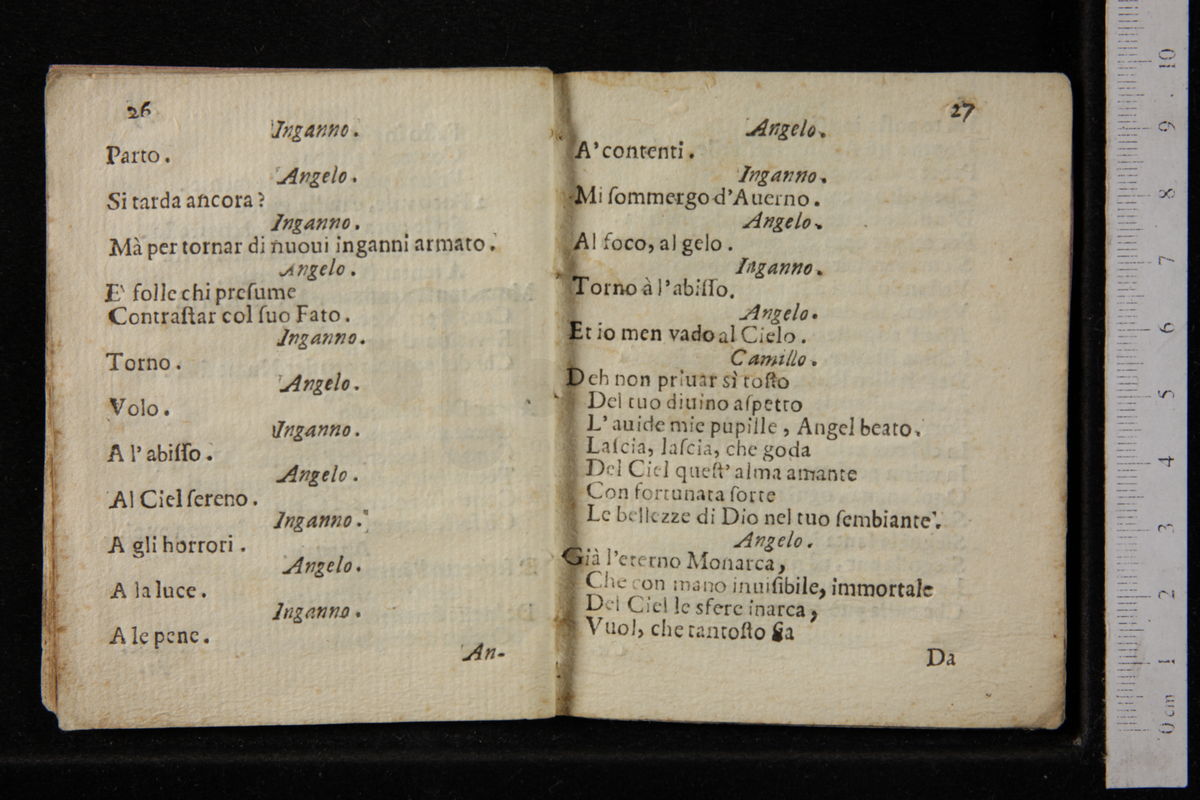 26
Inganno.
Parto.
Angelo.
Si tarda ancora?
Inganno.
Mà per tornar di nuoui inganni armato.
Angelo.
E' folle chi preſume
Contraſtar col ſuo Fato.
Inganno.
Torno.
Angelo.
Volo.
Inganno.
A l'abiſſo.
Angelo.
Al Ciel ſereno.
Inganno.
A gli horrori.
Angelo.
A la luce.
Inganno.
A le pene.
An-
27
Angelo.
A' contenti.
Inganno.
Mi ſommergo d'Auerno.
Angelo.
Al foco, al gelo.
Inganno.
Torno à l'abiſſo.
Angelo.
Et io men vado al Cielo.
Camillo.
Deh non priuar sì toſto
Del tuo diuino aſpetto
L'auide mie pupille, Angel beato.
Laſcia, laſcia, che goda
Del Ciel queſt'alma amante
Con fortunata ſorte
Le bellezze di Dio nel tuo ſembiante.
Angelo.
Già l'eterno Monarca,
Che con mano inuiſibile, immortale
Del Ciel le sfere inarca,
Vuol, che tantoſto ſia
Da
0 cm 1 2 3 4 5 6 7 8 9 10